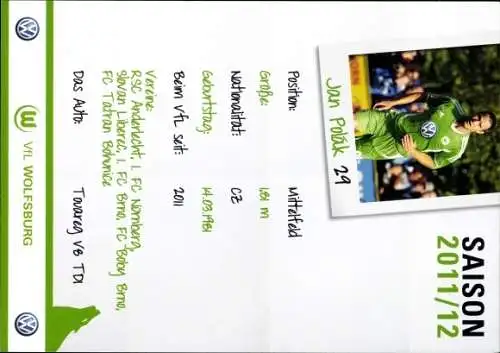 SAISON
2011/12
Jan Polák 29
Position: Mittelfeld
Größe: 1,81 m
Nationalität: CZ
Geburtstag: 14.03.1981
Beim VfL seit: 2011
Vereine:
RSC Anderlecht, 1. FC Nürnberg,
Slovan Liberec, 1. FC Brno, FC Boby Brno,
FC Tatran Bohunice
Das Auto: Touareg V8 TDI
VfL WOLFSBURG